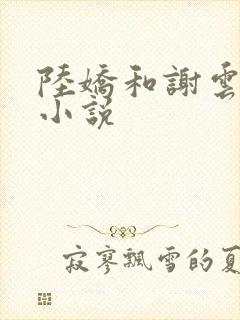 陸嬌和謝雲
小說
寂寥飄雪的夏